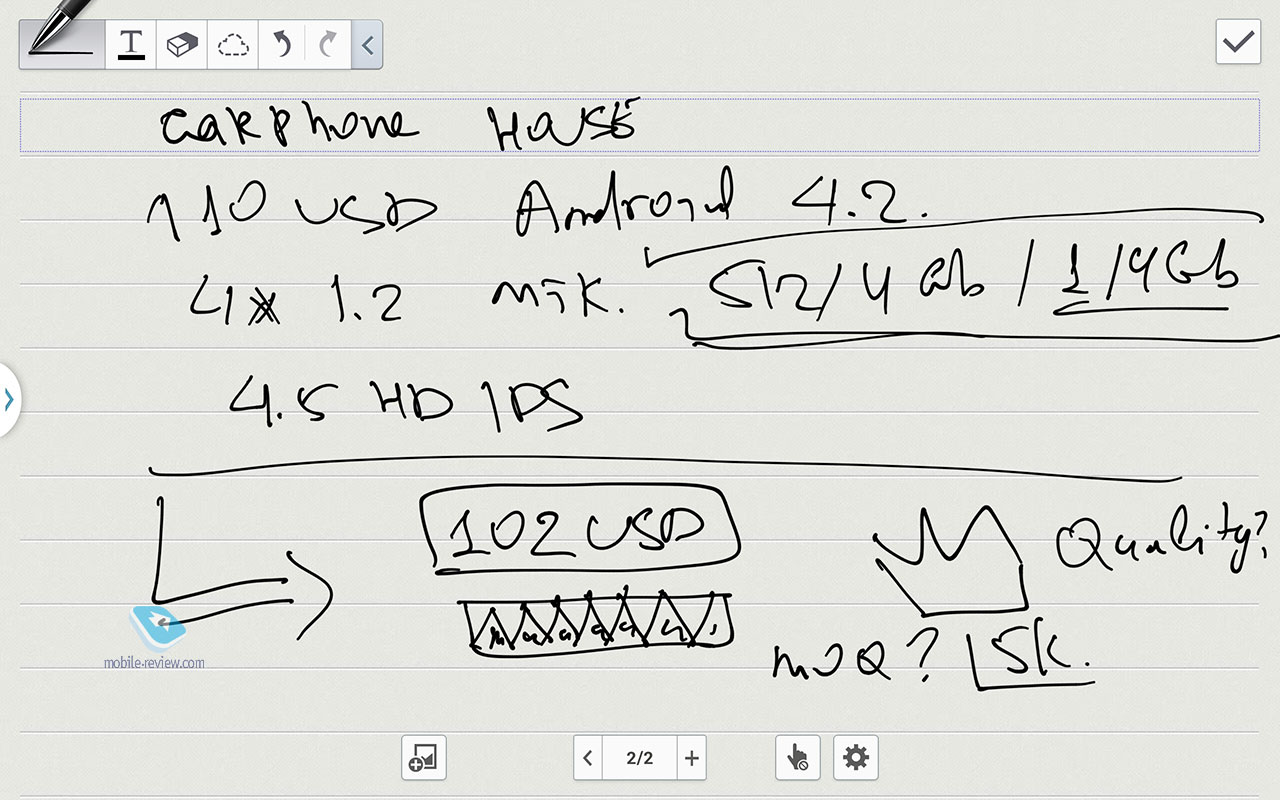 T
carphone House
110 USD Android 4.2.
4x 1.2 MTK. 512/4 Gb / 1/4Gb
4.5 HD IPS
102 USD
Quality?
MOQ? 5k.
mobile-review.com
2/2